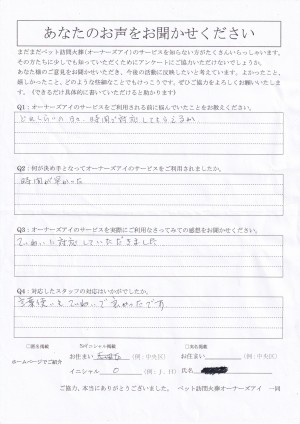 あなたのお声をお聞かせください
まだまだペット訪問火葬(オーナーズアイ)のサービスを知らない方がたくさんいらっしゃいます。
その方たちに少しでも知っていただくためにアンケートにご協力いただけないでしょうか。
あなた様のご意見をお聞かせいただき、今後の活動に反映したいと考えています。よかったこと、
嬉しかったこと、どのような些細なことでもけっこうです。ぜひご協力をよろしくお願いいたします。
(できるだけ具体的に書いていただけると助かります)
Q1:オーナーズアイのサービスをご利用される前に悩んでいたことをお教えください。
時間で対応してもらえるか
Q2:何が決め手となってオーナーズアイのサービスをご利用されましたか。
時間が早かった
Q3:オーナーズアイのサービスを実際にご利用なさってみての感想をお聞かせください。
ていねいに対応していただきました
Q4:対応したスタッフの対応はいかがでしたか。
言葉使いもていねいで良かったです
□匿名掲載 ☑イニシャル掲載 □実名掲載
ホームページでご紹介 お住まい (例:中央区) お住まい (例:中央区)
イニシャル O (例:J.H) 氏名
ご協力、本当にありがとうございました。 ペット訪問火葬オーナーズアイ 一同